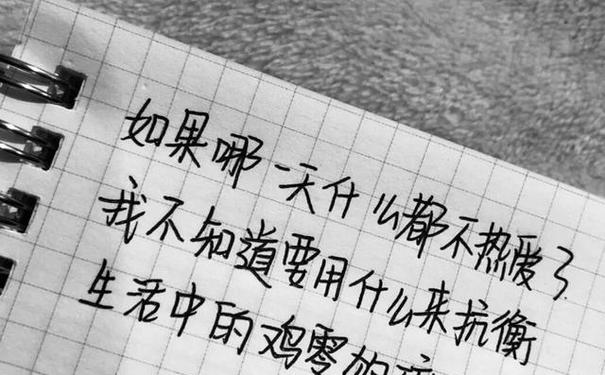 如果哪一天什么都不热爱了
我不知道要用什么来抗衡
生活中的鸡零狗